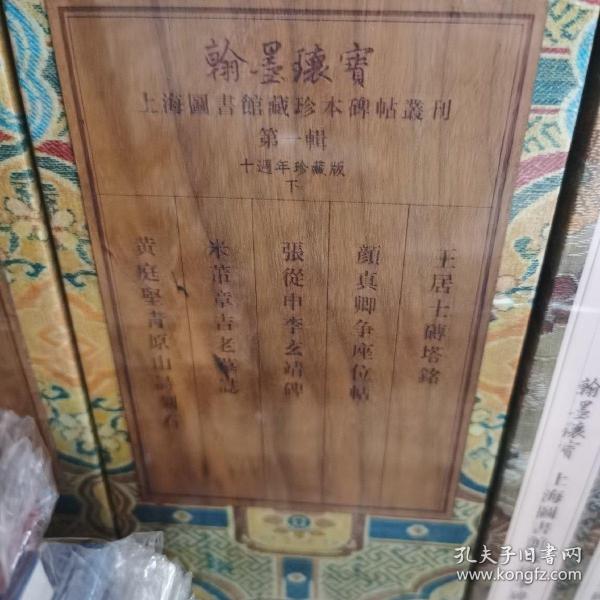 翰墨瓌寳
上海圖書館藏珍本碑帖叢刊
第一輯
十週年珍藏版
下
王居士磚塔銘
顔真卿争座位帖
張從申李玄靖碑
米芾章吉老墓誌
黄庭堅青原山詩刻石
翰墨瓌寳 上海圖書館
孔夫子旧书网
www.kongfz.com